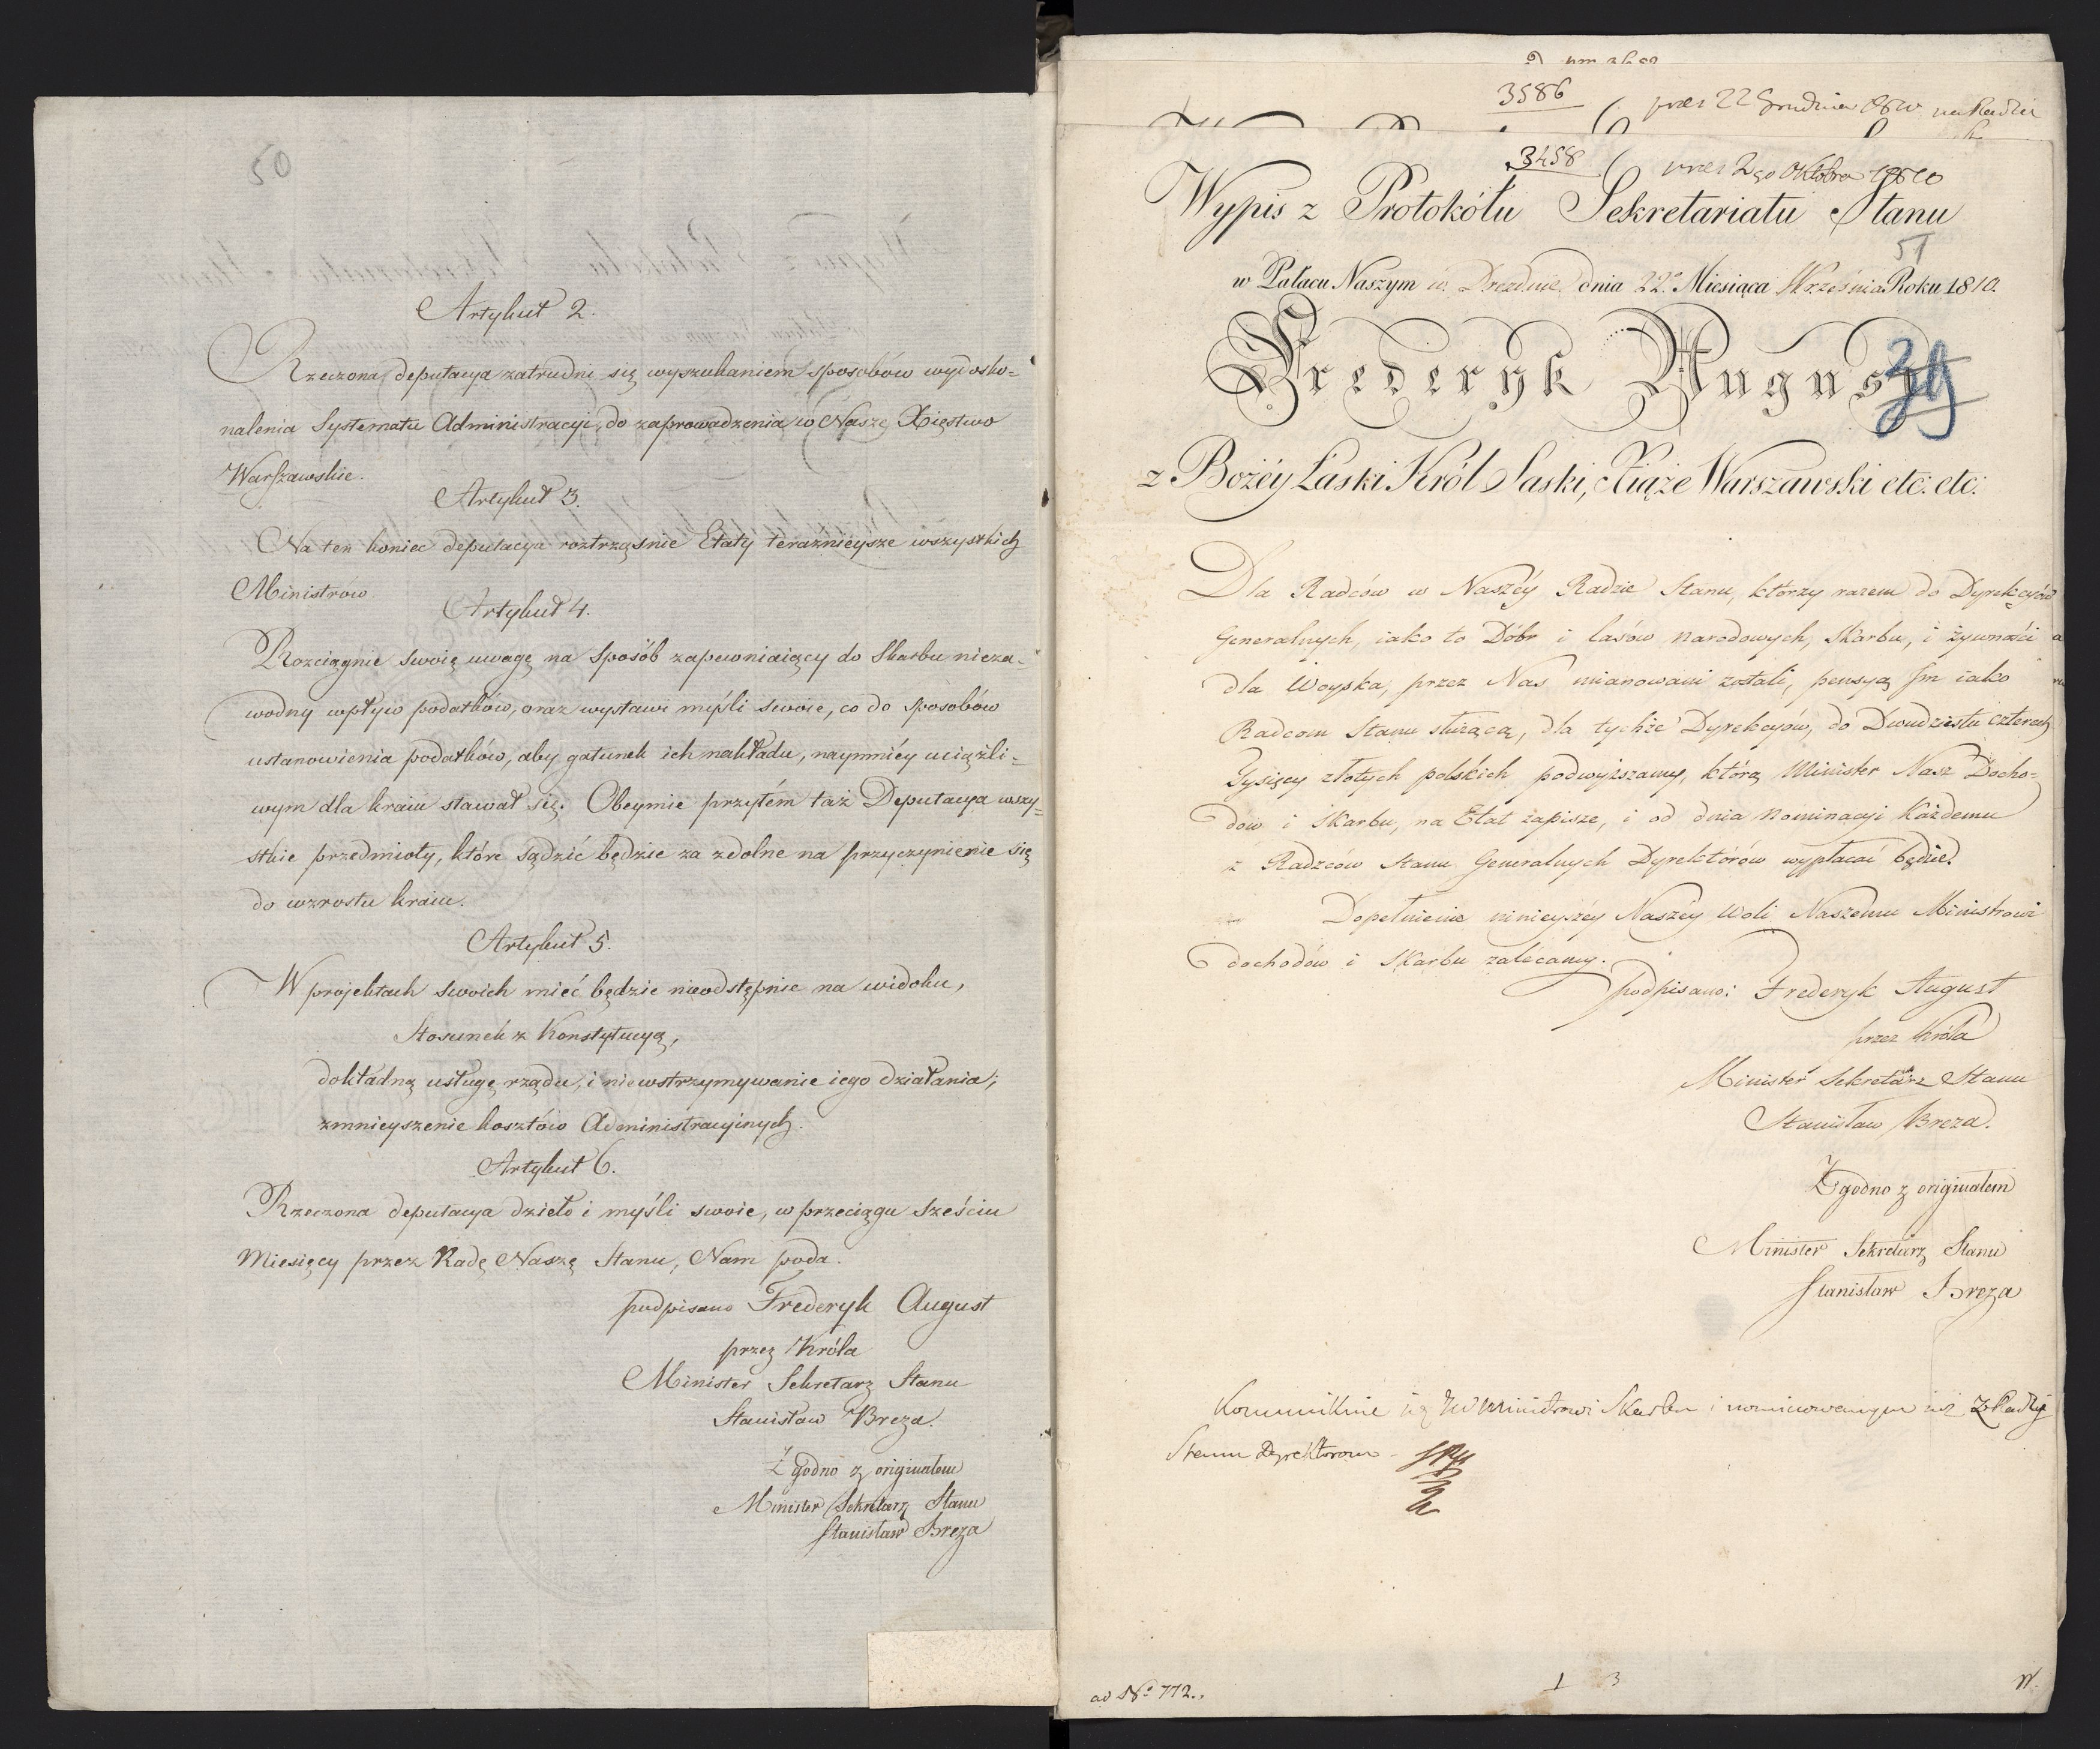 50
Artykuł 2.
Rzeczona deputacya zatrudni się wyszukaniem sposobów wydosko-
nalenia Systematu Administracyi, do zaprowadzenia w Nasze Xięstwo
Warszawskie.
Artykuł 3.
Na ten koniec deputacya roztrząsnie Etaty teraźnieysze wszystkich
Ministrów
Artykuł 4.
Rozciągnie swoię uwagę na sposób zapewniaiący do Skarbu nieza-
wodny wpływ podatków, oraz wystawi myśli swoie, co do sposobów
ustanowienia podatków, aby gatunek ich nakładu, naymniéy uciążli-
wym dla kraiu stawał się. Obeymie przytém taż Deputacya wszy-
stkie przedmioty, które sądzić będzie za zdolne na przyczynienie się
do wzrostu kraiu.
Artykuł 5.
W projektach swoich mieć będzie nieodstępnie na widoku,
Stosunek z Konstytucyą,
dokładną usługę rządu, i niewstrzymywanie iego działania;
zmnieyszenie kosztów Administracyinych.
Artykuł 6.
Rzeczona deputacya dzieło i myśli swoie, w przeciągu sześciu
Miesięcy przez Radę Naszę Stanu, Nam poda.
podpisano Frederyk August
przez Króla
Minister Sekretarz Stanu
Stanisław Breza.
Zgodno z originałem
Minister Sekretarz Stanu
Stanisław Breza
3586 pres 22 Grudnia 1810 na Radzie
3458 pres 2go Oktobra 1810
Wypis z Protokółu Sekretariatu Stanu
51
w Pałacu Naszym w Dreźnie dnia 22º Miesiąca Września Roku 1810.
Frederyk August
39
z Bożéy Łaski Król Saski, Xiąże Warszawski etc: etc:
Dla Radców w Naszéy Radzie Stanu, którzy razem do Dyrekcyów
Generalnych, iako to Dóbr i lasów narodowych, Skarbu, i żywności
dla Woyska, przez Nas mianowani zostali, pensyą Im iako
Radcom Stanu służącą, dla tychże Dyrekcyów, do Dwudziestu czterech
Tysięcy złotych polskich podwyższamy, którą Minister Nasz Docho-
dów i Skarbu, na Etat zapisze, i od dnia Nominacyi Każdemu
z Radzców Stanu Generalnych Dyrektorów wypłacać będzie.
Dopełnienie ninieyszey Naszéy Woli Naszemu Ministrowi
dochodów i Skarbu zalécamy.
podpisano: Frederyk August
przez Króla
Minister Sekretarz Stanu
Stanisław Breza.
Zgodno z originałem
Minister Sekretarz Stanu
Stanisław Breza
Kommunikuie się JW Ministrowi Skarbu i nominowanym z Rady
Stanu Dyrektorom
ad Nº 772.
1 3